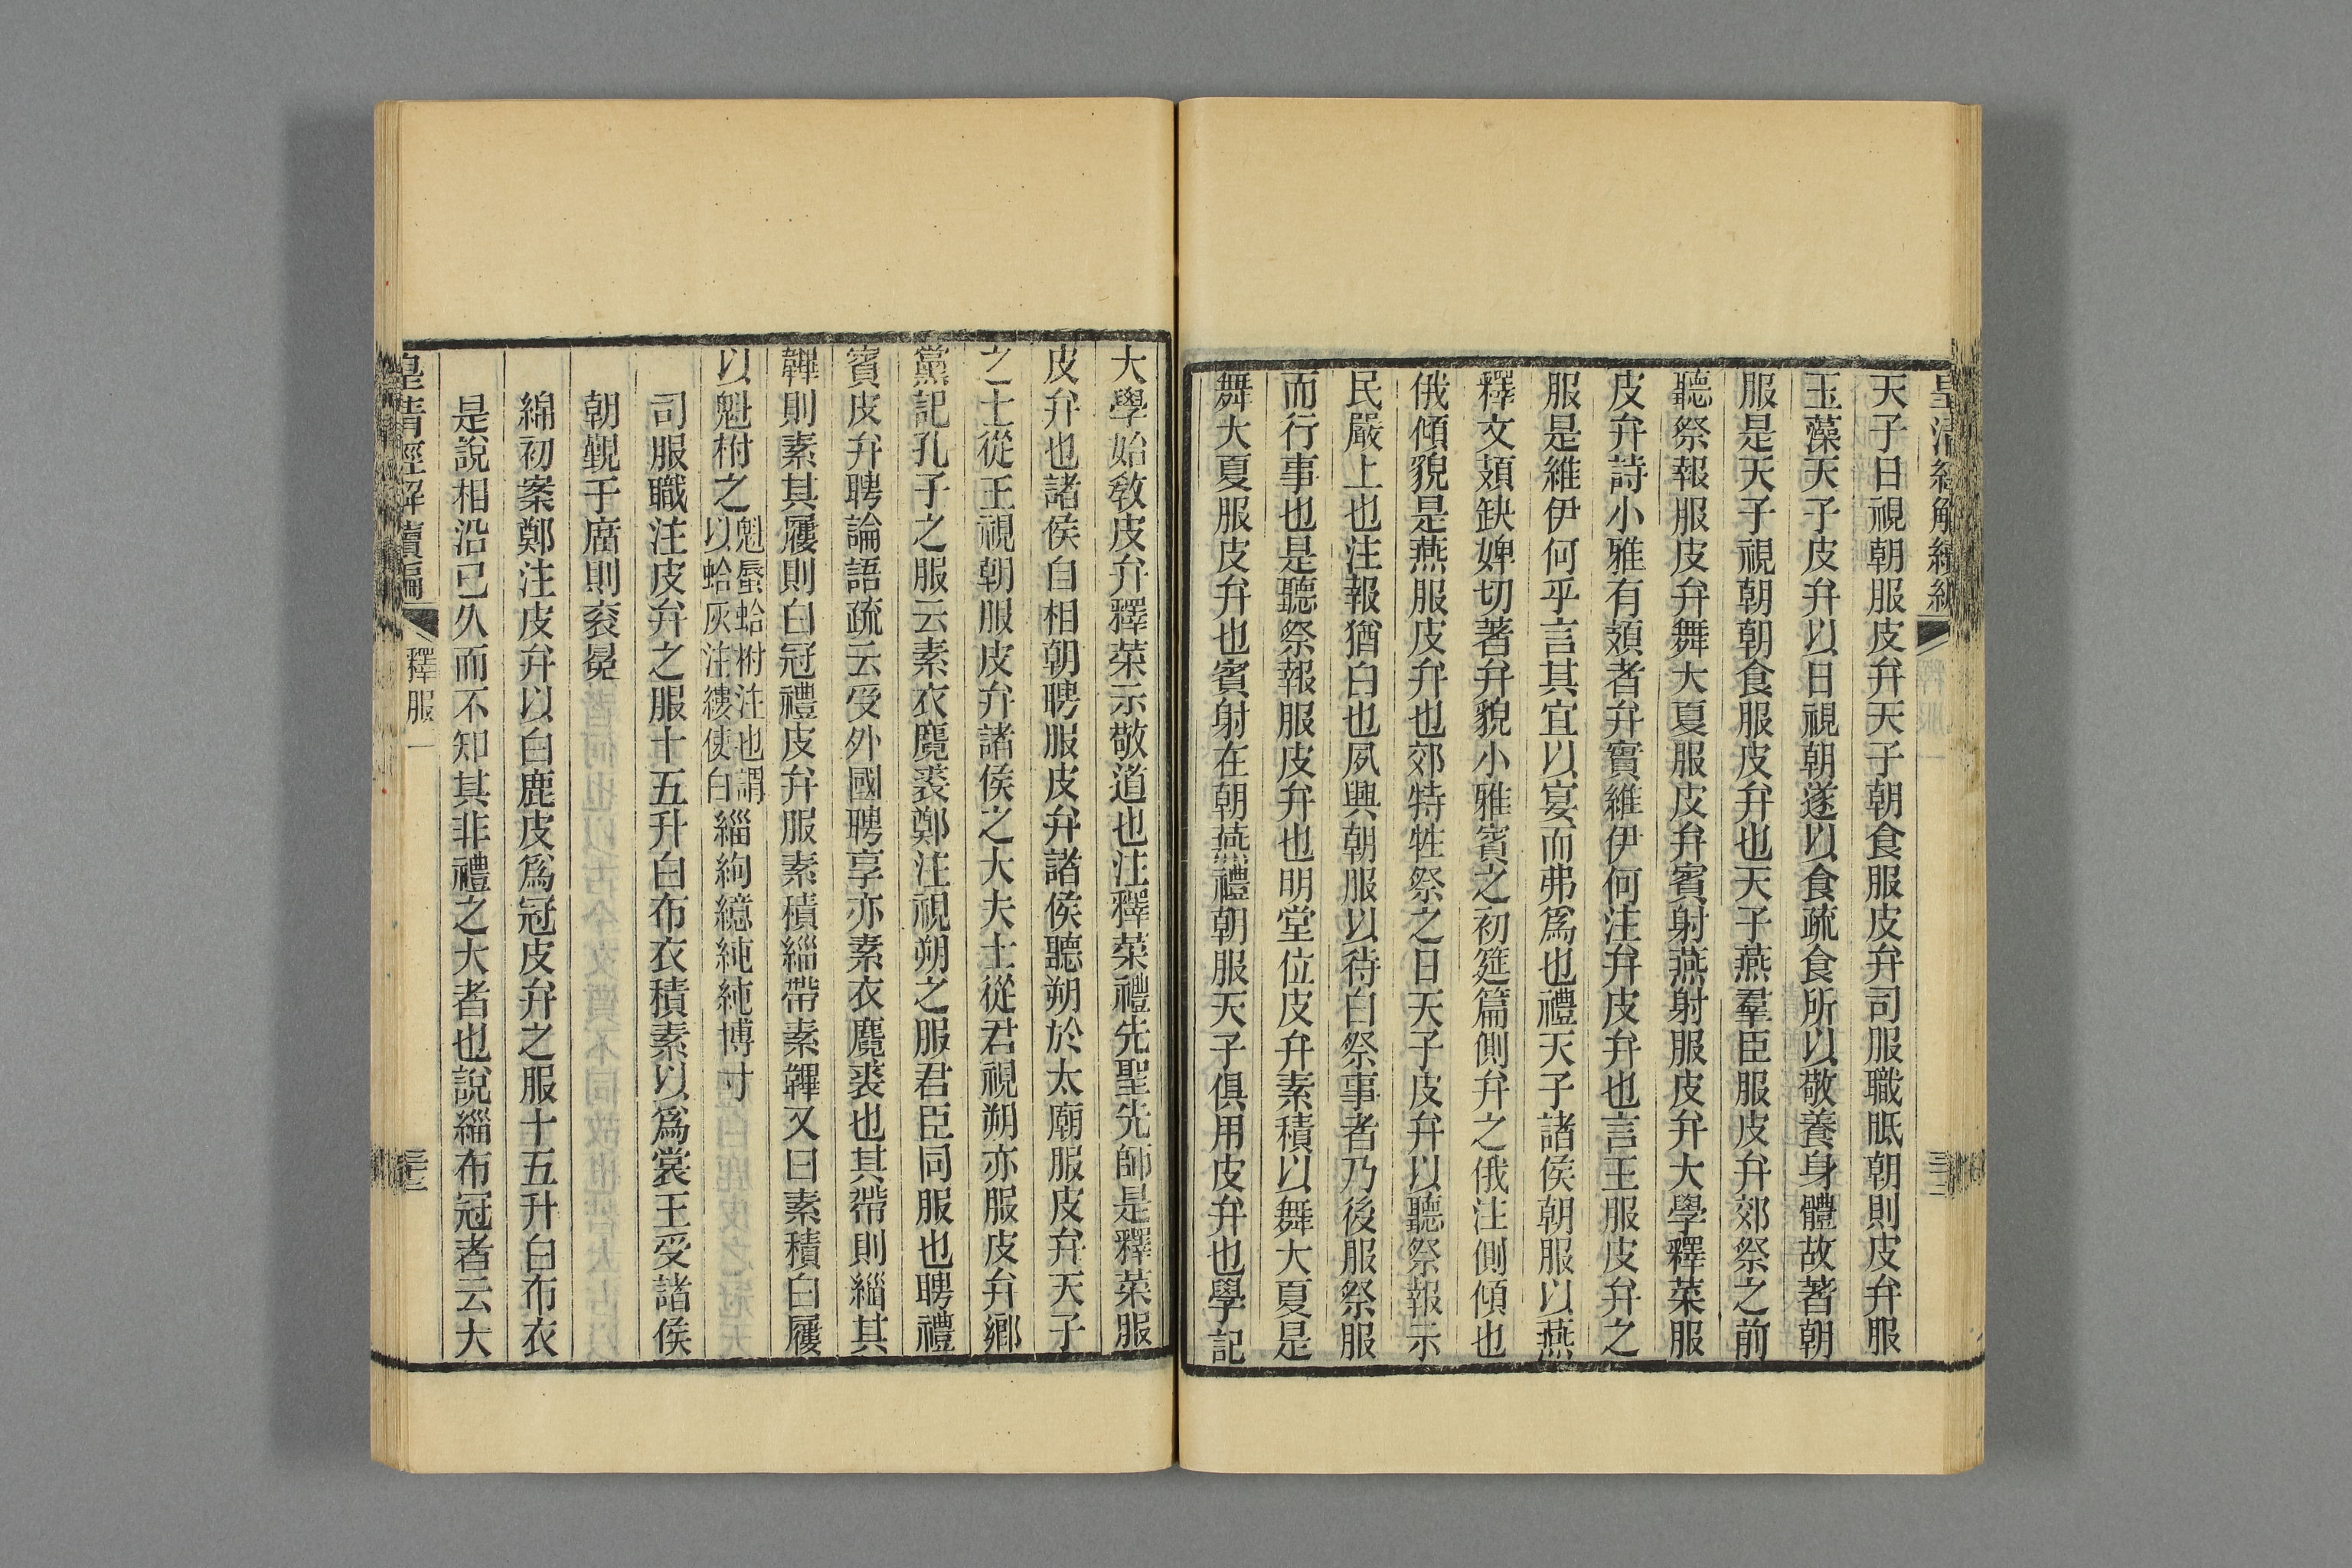 皇清經解續編
天子日視朝服皮弁天子朝食服皮弁司服職眂朝則皮弁服
玉藻天子皮弁以日視朝遂以食疏食所以敬養身體故著朝
服是天子視朝朝食服皮弁也天子燕羣臣服皮弁郊祭之前
聽祭報服皮弁舞大夏服皮弁賓射燕射服皮弁大學釋菜服
皮弁詩小雅有頍者弁實維伊何注弁皮弁也言王服皮弁之
服是維伊何乎言其宜以宴而弗爲也禮天子諸侯朝服以燕
釋文頍缺婢切著弁貌小雅賓之初筵篇側弁之俄注側傾也
俄傾貌是燕服皮弁也郊特牲祭之日天子皮弁以聽祭報示
民嚴上也注報猶白也夙興朝服以待白祭事者乃後服祭服
而行事也是聽祭報服皮弁也明堂位皮弁素積以舞大夏是
舞大夏服皮弁也賓射在朝燕禮朝服天子俱用皮弁也學記
大學始敎皮弁釋菜示敬道也注釋菜禮先聖先師是釋菜服
皮弁也諸侯自相朝聘服皮弁諸侯聽朔於太廟服皮弁天子
之士從王視朝服皮弁諸侯之大夫士從君視朔亦服皮弁鄉
黨記孔子之服云素衣麑裘鄭注視朔之服君臣同服也聘禮
賓皮弁聘論語疏云受外國聘享亦素衣麑裘也其帶則緇其
韠則素其屨則白冠禮皮弁服素積緇帶素韠又曰素積白屨
以魁柎之魁蜃蛤柎注也謂以蛤灰注縷使白緇絢繶純純博寸
司服職注皮弁之服十五升白布衣積素以爲裳王受諸侯
朝覲于廟則衮冕
綿初案鄭注皮弁以白鹿皮爲冠皮弁之服十五升白布衣
是說相沿已久而不知其非禮之大者也說緇布冠者云大
皇清經解續編
釋服一